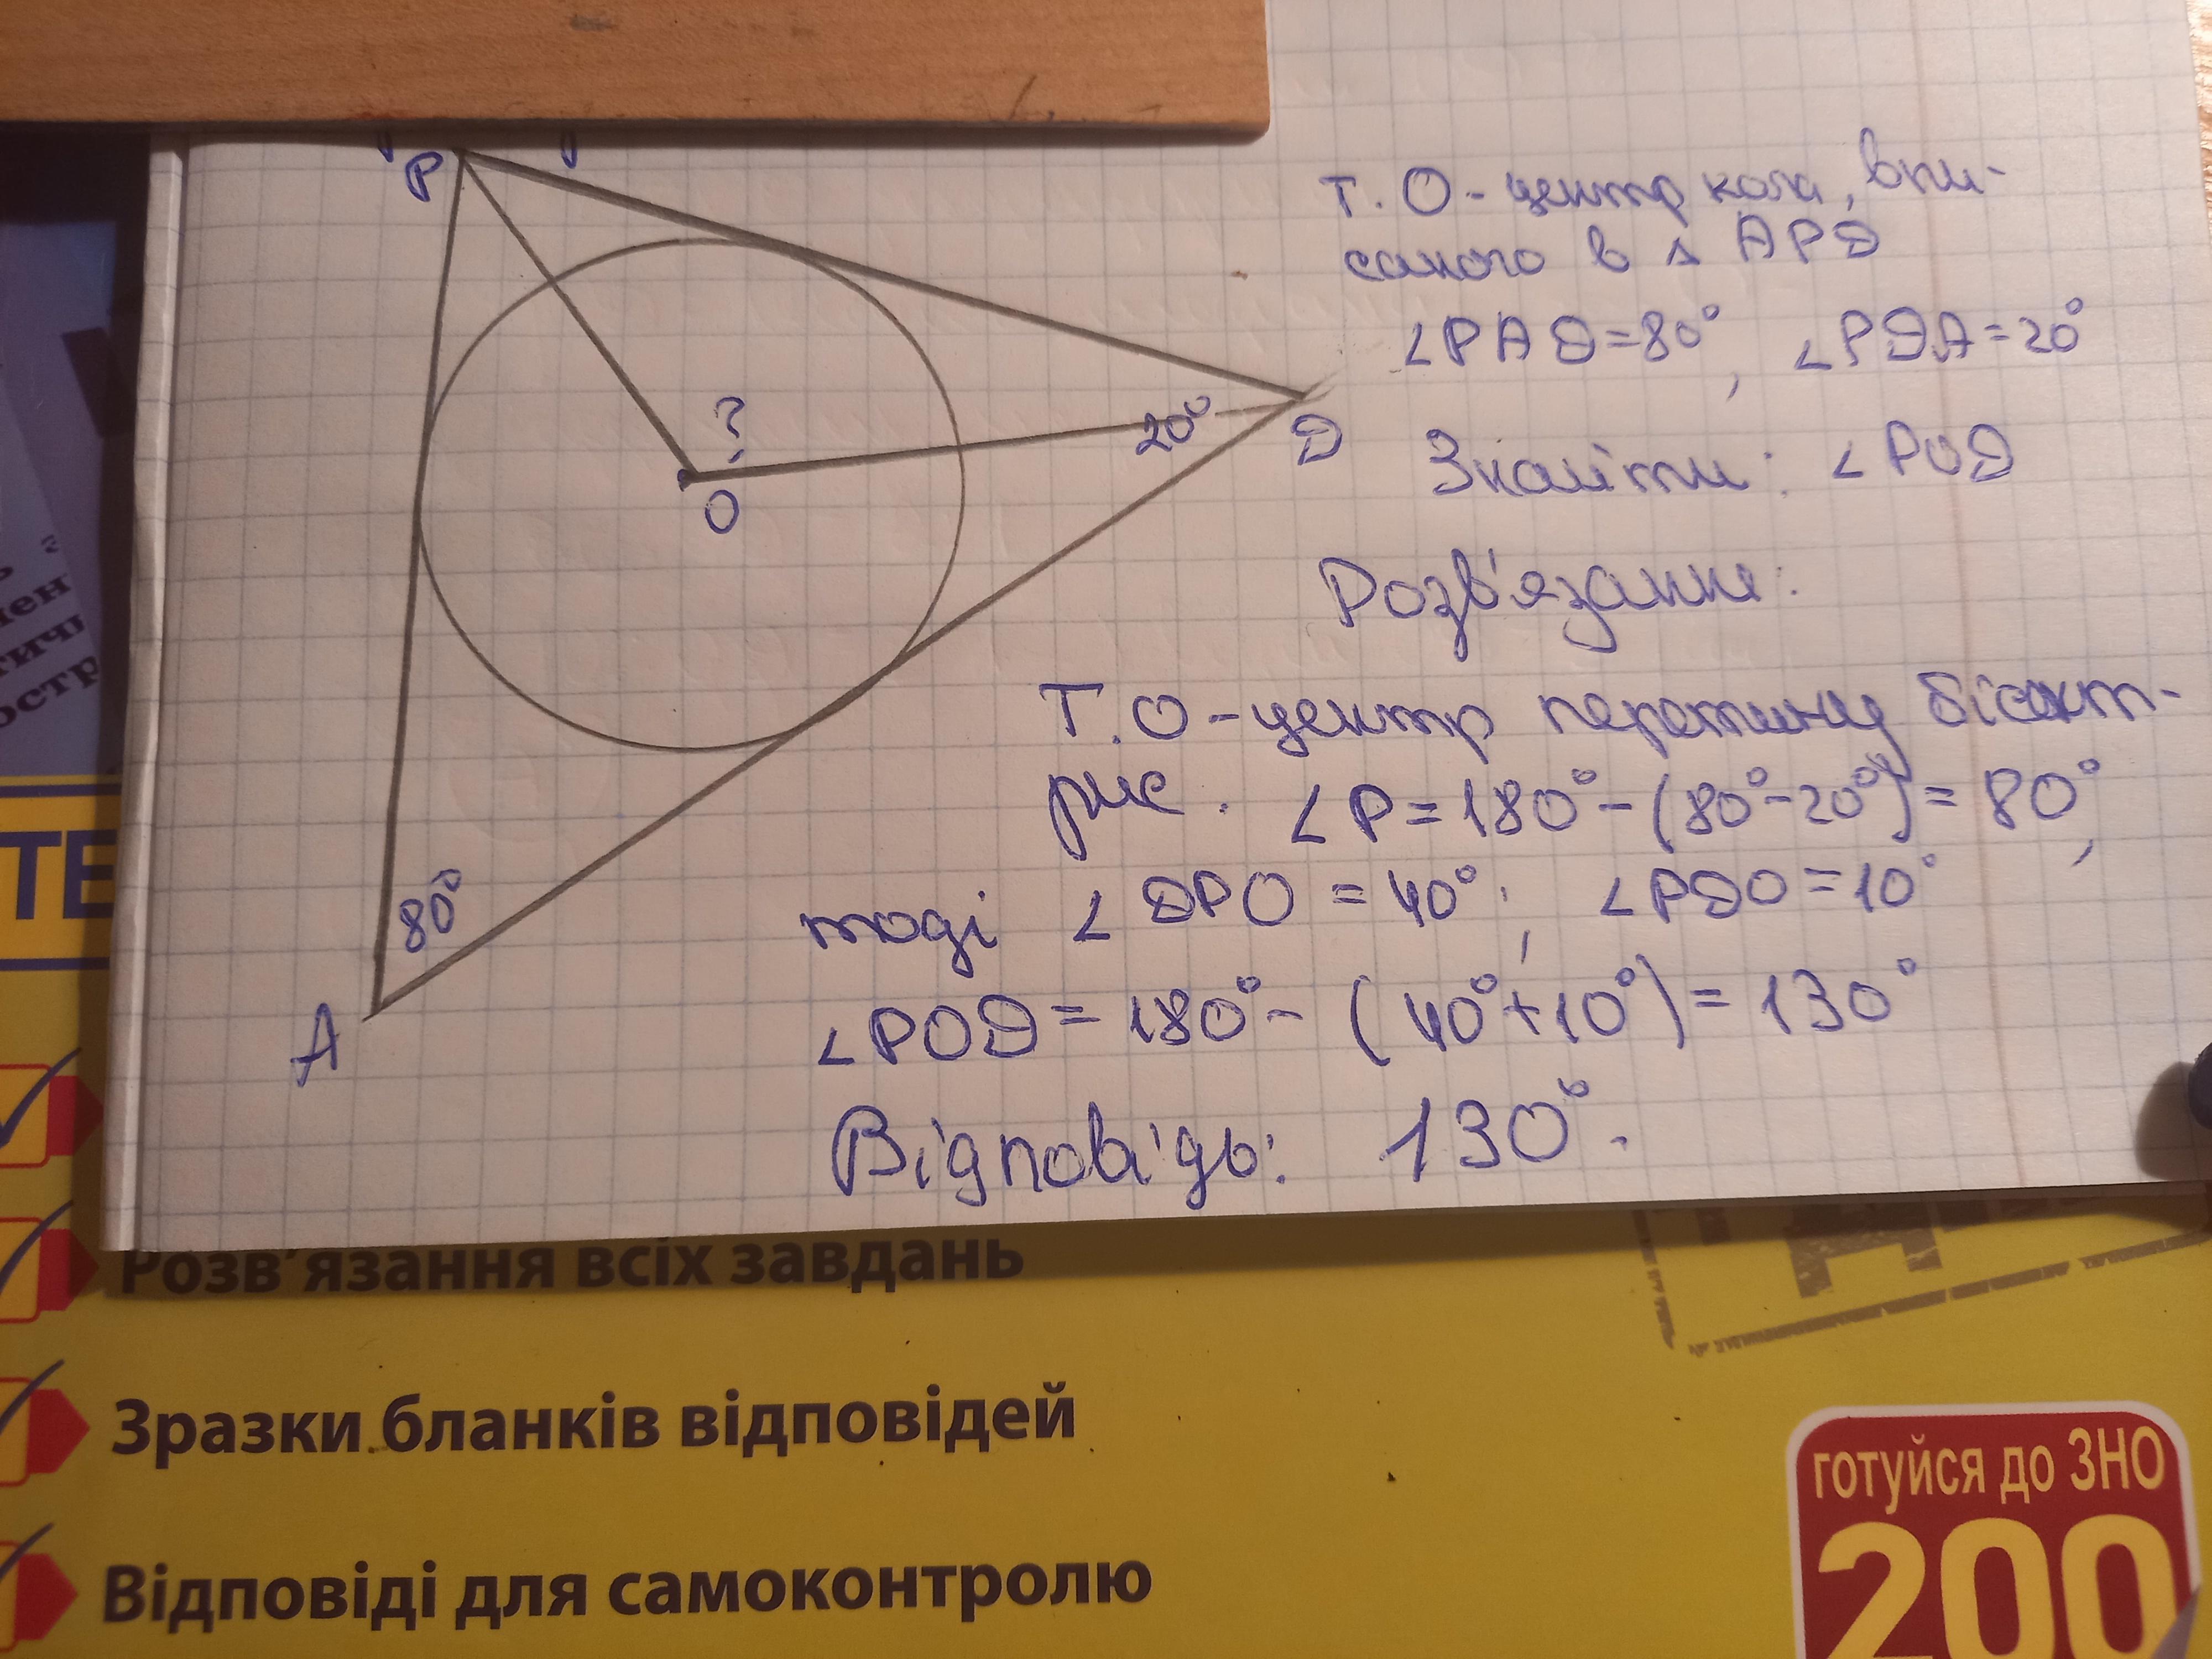 P
т. О - центр кола, впи-
саного в △ APD
∠PAD=80°, ∠PDA=20°
?
20°
D
O
Знайти: ∠POD
Розв'язання:
Т.О - центр перетину бісект-
рис. ∠P=180°-(80°-20°)=80°,
80°
тоді ∠DPO=40°; ∠PDO=10°
∠POD=180°-(40°+10°)=130°
A
Відповідь: 130°.
тичн
остр
ТЕ
Розв'язання всіх завдань
Зразки бланків відповідей
Відповіді для самоконтролю
готуйся до ЗНО
200